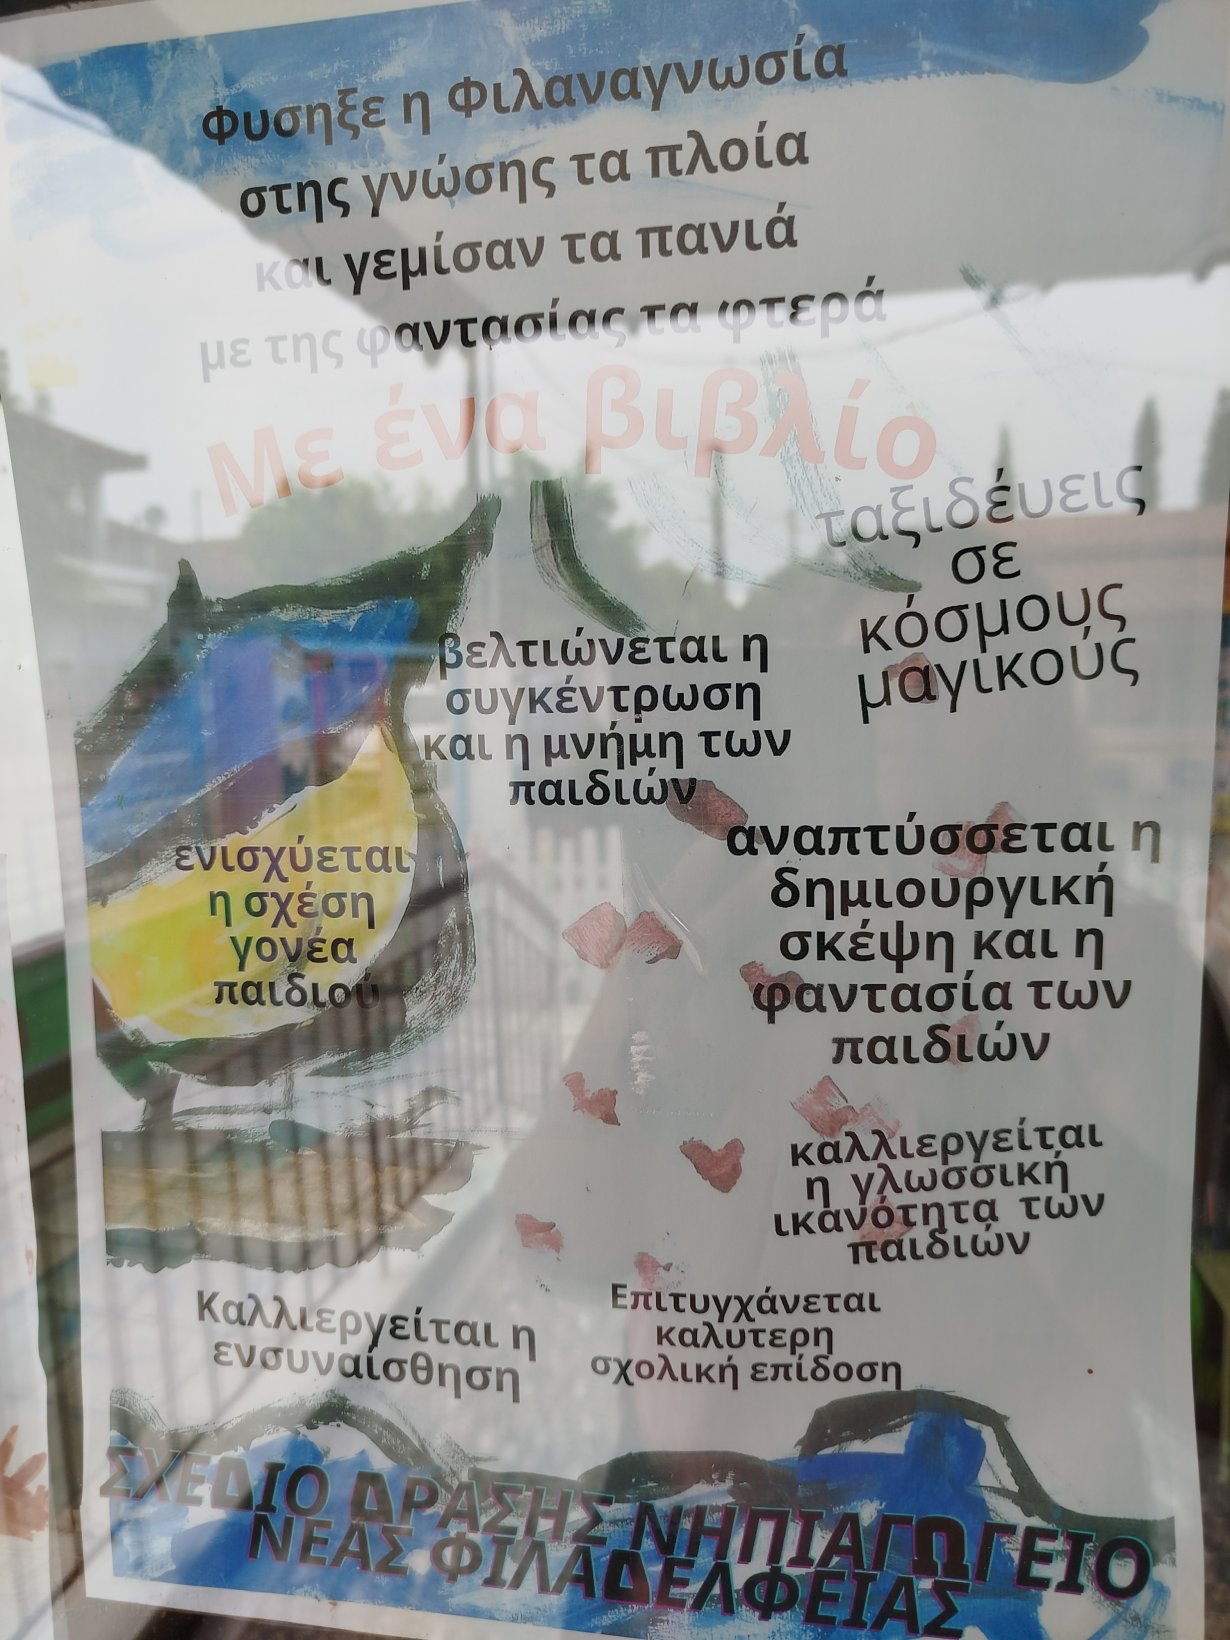 Φυσηξε η Φιλαναγνωσία
στης γνώσης τα πλοία
και γεμίσαν τα πανιά
με της φαντασίας τα φτερά
Με ένα βιβλίο
ταξιδέυεις
σε
κόσμους
μαγικούς
βελτιώνεται η
συγκέντρωση
και η μνήμη των
παιδιών
ενισχύεται
η σχέση
γονέα
παιδιού
αναπτύσσεται η
δημιουργική
σκέψη και η
φαντασία των
παιδιών
καλλιεργείται
η γλωσσική
ικανότητα των
παιδιών
Καλλιεργείται η
ενσυναίσθηση
Επιτυγχάνεται
καλυτερη
σχολική επίδοση
ΣΧΕΔΙΟ ΔΡΑΣΗΣ ΝΗΠΙΑΓΩΓΕΙΟ
ΝΕΑΣ ΦΙΛΑΔΕΛΦΕΙΑΣ